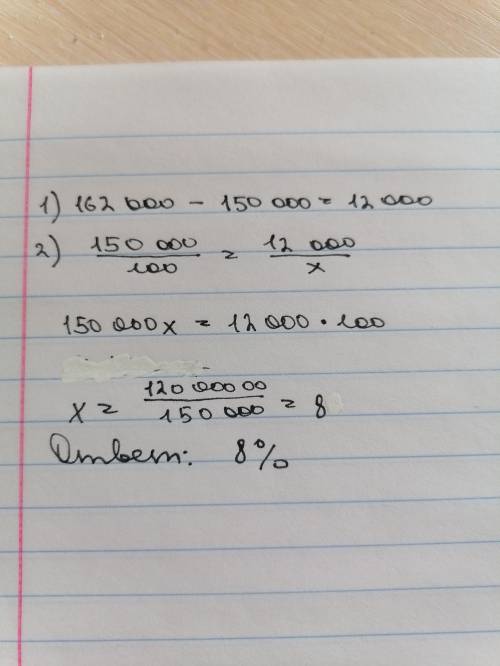 1) 162 000 - 150 000 = 12 000
2) 150 000/100 = 12 000/x
150 000x = 12 000 · 100
x = 120 000 00/150 000 = 8
Ответ: 8%